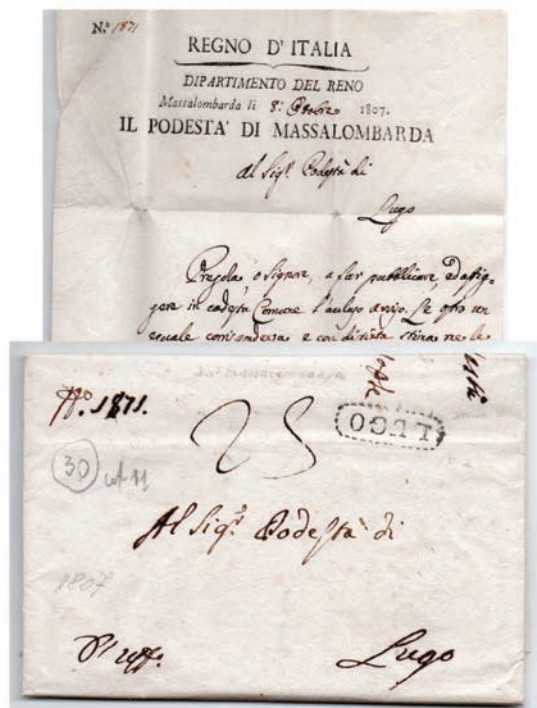 N.º 1871
REGNO D'ITALIA
DIPARTIMENTO DEL RENO
Massalombarda li 8: Ottobre 1807.
IL PODESTA' DI MASSALOMBARDA
Al Sigr. Podestà di
Lugo
Pregola, o Signore, a far pubblicare, ed affig-
gere in codesta Comune l'avviso. Le offro un
eguale corrispondenza e con distinta stima me le
da Massalombarda
Nº. 1871.
25
LUGO
30 cat 11
Al Sigr. Podestà di
1807
D'uff.
Lugo